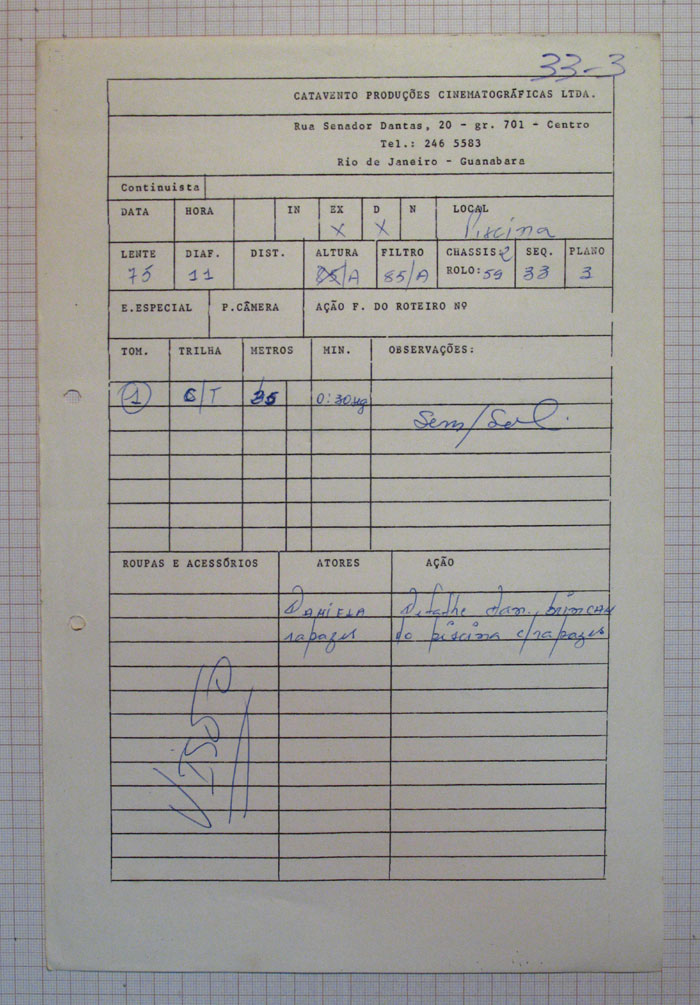 33-3
CATAVENTO PRODUÇÕES CINEMATOGRÁFICAS LTDA.
Rua Senador Dantas, 20 - gr. 701 - Centro
Tel.: 246 5583
Rio de Janeiro - Guanabara
Continuista
DATA HORA IN EX D N LOCAL
X X Piscina
LENTE DIAF. DIST. ALTURA FILTRO CHASSIS 2 SEQ. PLANO
75 11 85/A 85/A ROLO: 59 33 3
E.ESPECIAL P.CÂMERA AÇÃO F. DO ROTEIRO Nº
TOM. TRILHA METROS MIN. OBSERVAÇÕES:
1 C/T 35 0:30sg
Sem/Sol.
ROUPAS E ACESSÓRIOS ATORES AÇÃO
DANIELA Detalhe Dan. brincan
rapazes do piscina c/rapazes
VISO